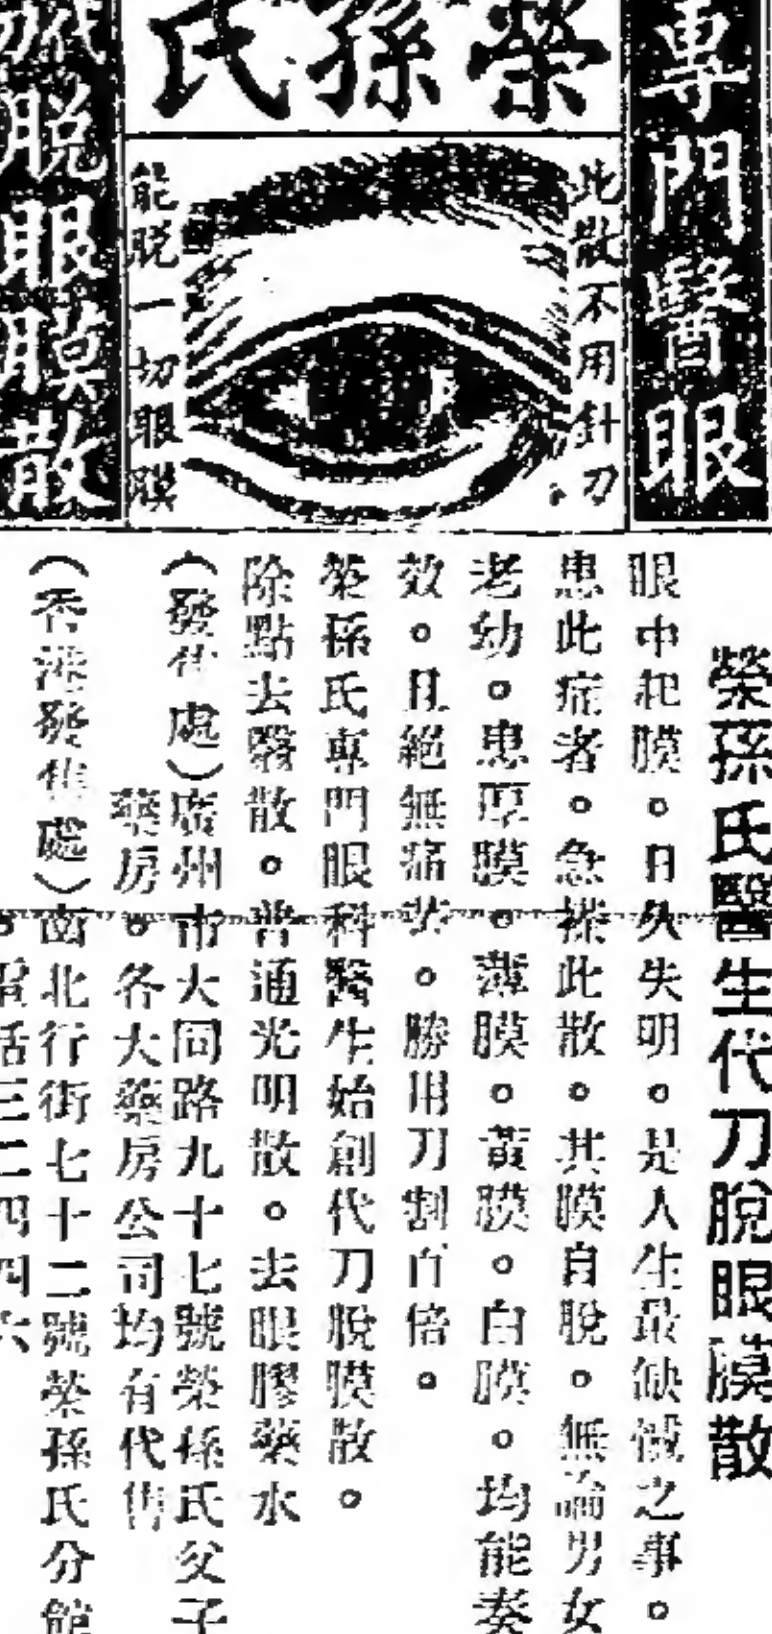 專門醫眼
榮孫氏
此散不用針刀
能脫一切眼膜
脫眼膜散
榮孫氏醫生代刀脫眼膜散
眼中起膜。日久失明。是人生最缺憾之事。
患此症者。急搽此散。其膜自脫。無論男女
老幼。患厚膜。薄膜。黃膜。白膜。均能奏
效。且絕無痛苦。勝用刀割百倍。
榮孫氏專門眼科醫生始創代刀脫膜散。
除點去翳散。普通光明散。去眼膠藥水
(發售處)廣州市大同路九十七號榮孫氏父子
藥房。各大藥房公司均有代售
(香港發售處)南北行街七十二號榮孫氏分館
。電話三二四四六